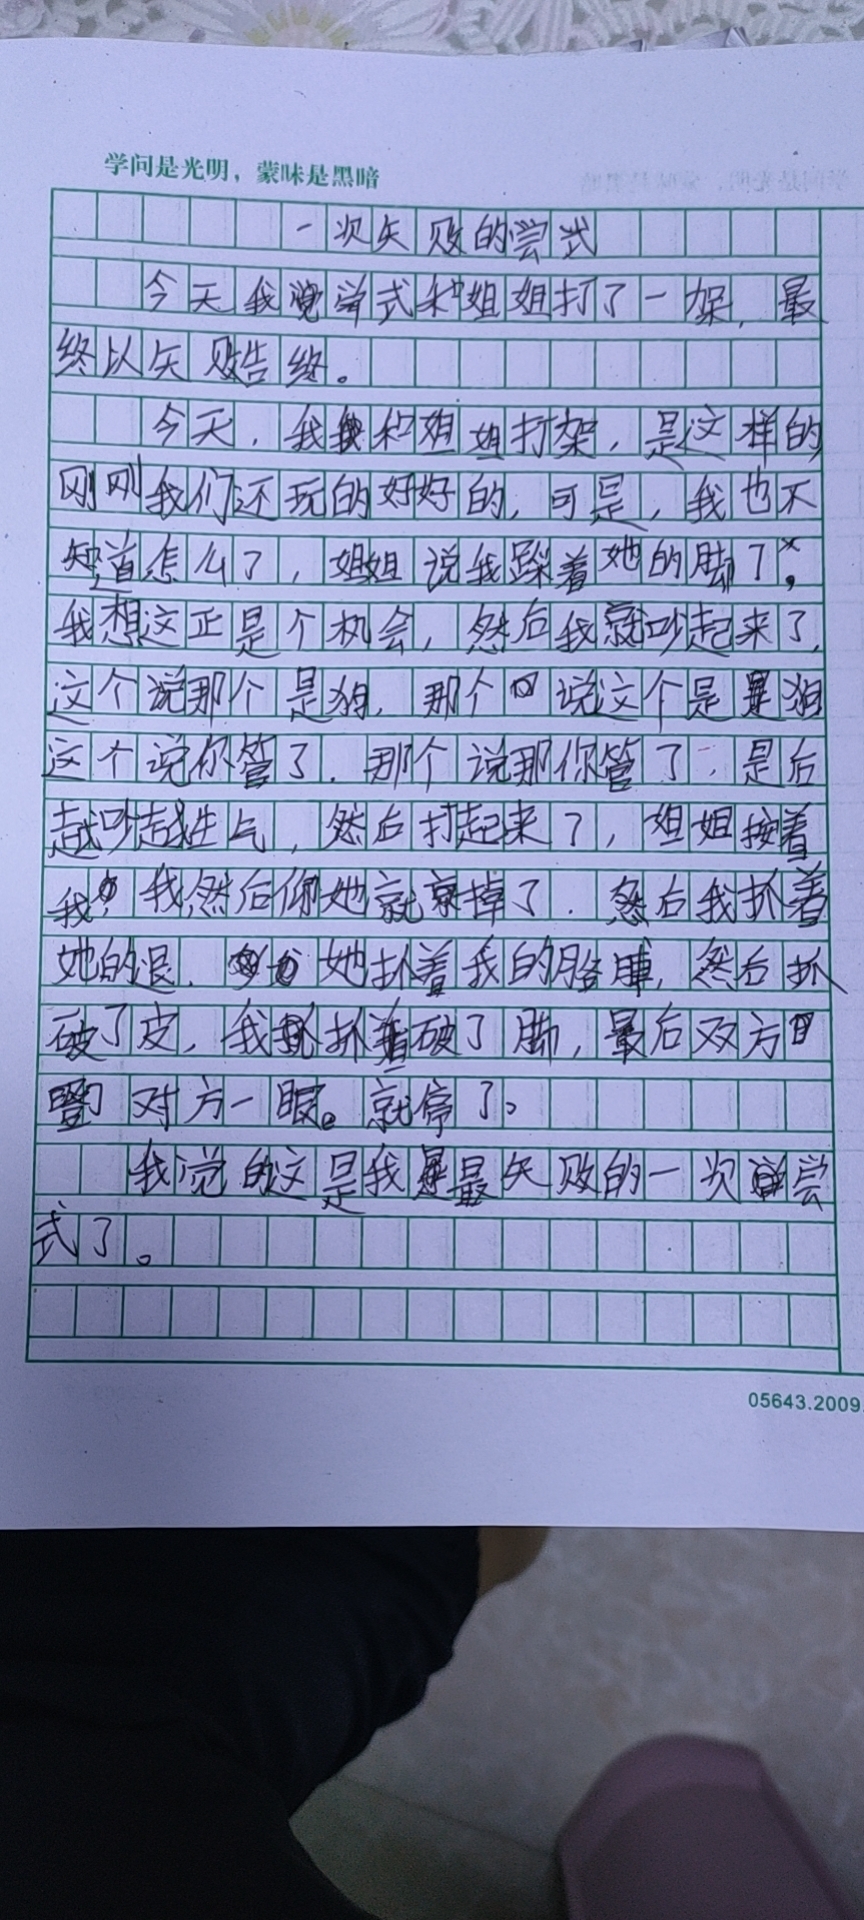 学问是光明，蒙昧是黑暗
一次失败的尝式
今天我尝式和姐姐打了一架，最
终以失败告终。
今天，我和姐姐打架，是这样的
刚刚我们还玩的好好的，可是，我也不
知道怎么了，姐姐说我踩着她的脚了，
我想这正是个机会，然后我就吵起来了，
这个说那个是狗，那个说这个是狗
这个说你管了，那个说那你管了，是后
越吵越生气，然后打起来了，姐姐按着
我，我然后她就掉了，然后我抓着
她的退，她抓着我的胳膊，然后抓
破了皮，我抓破了脚，最后双方
瞪对方一眼。就停了。
我觉的这是我最失败的一次尝
式了。
05643.2009.